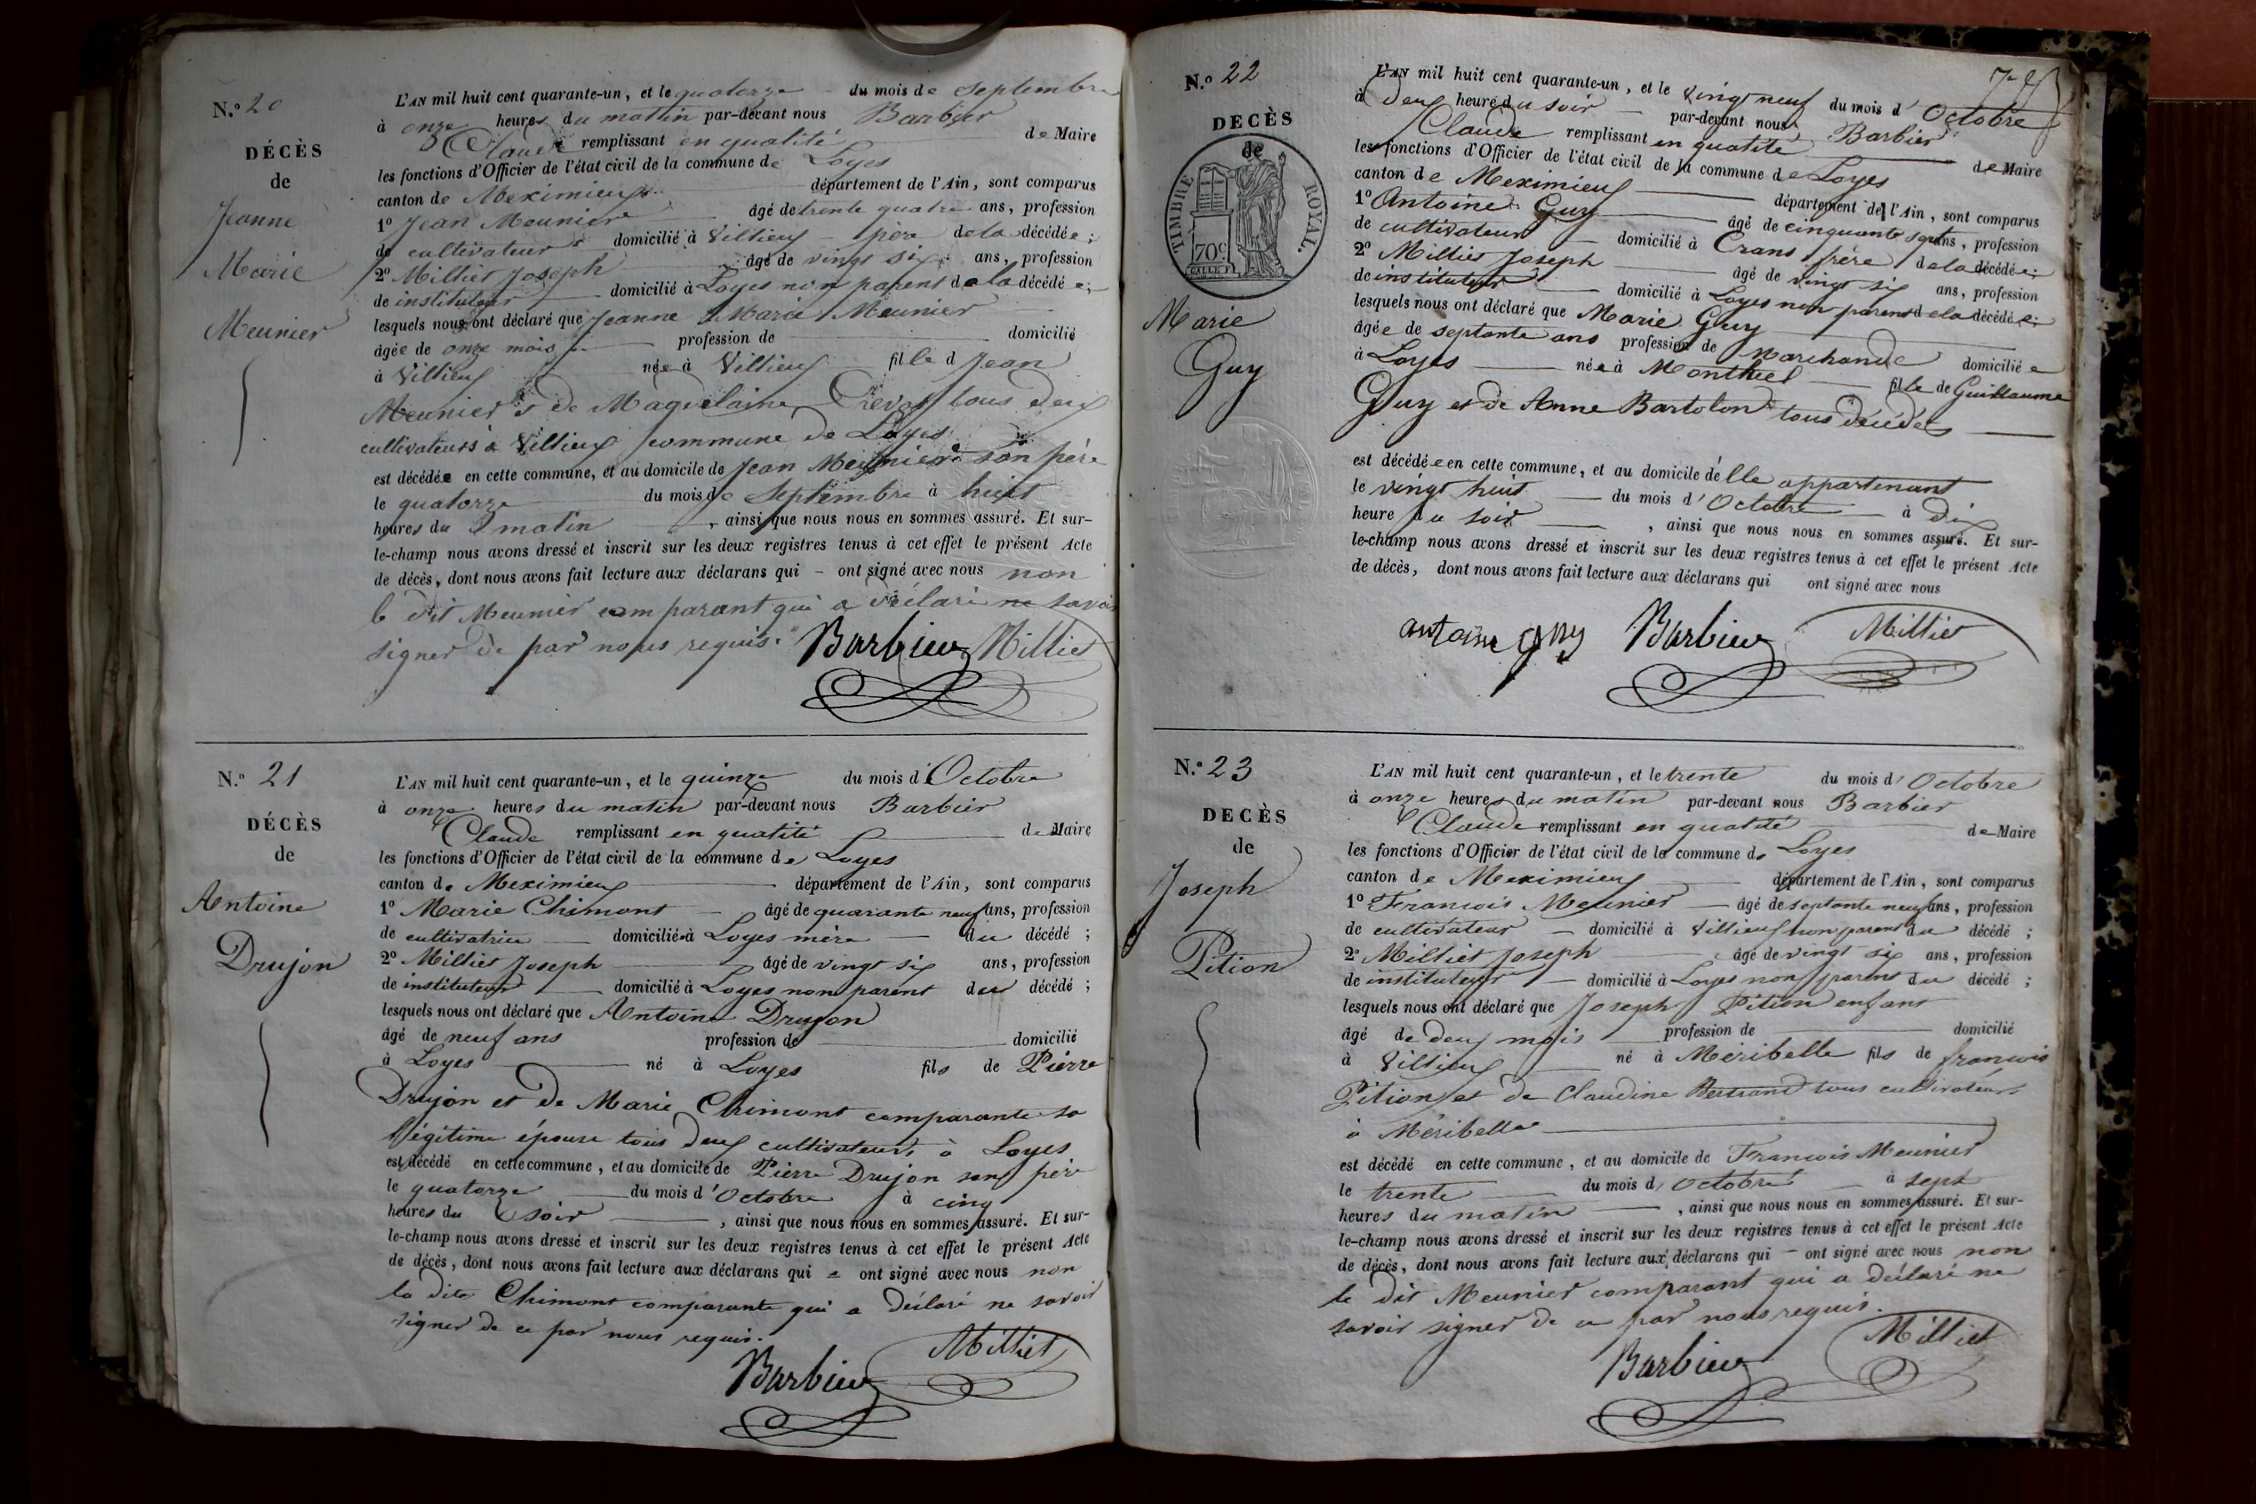 N.º 20
DÉCÈS
de
Jeanne
Marie
Meunier
L'AN mil huit cent quarante-un, et le quatorze du mois de septembre
à onze heures du matin par-devant nous Barbier
Claude remplissant en qualité de Maire
les fonctions d'Officier de l'état civil de la commune de Loyes
canton de Meximieux département de l'Ain, sont comparus
1º Jean Meunier âgé de trente quatre ans, profession
de cultivateur domicilié à Villieux père de la décédée;
2º Milliet Joseph âgé de vingt six ans, profession
de instituteur domicilié à Loyes non parent de la décédée;
lesquels nous ont déclaré que Jeanne Marie Meunier
âgée de onze mois profession de domicilié
à Villieux née à Villieux fille d Jean
Meunier & de Magdelaine tous deux
cultivateurs à Villieux commune de Loyes
est décédée en cette commune, et au domicile de Jean Meunier son père
le quatorze du mois de septembre à huit
heures du matin, ainsi que nous nous en sommes assuré. Et sur-
le-champ nous avons dressé et inscrit sur les deux registres tenus à cet effet le présent Acte
de décès, dont nous avons fait lecture aux déclarans qui – ont signé avec nous non
le dit Meunier comparant qui a déclaré ne savoir
signer de par nous requis.
Barbier Milliet
N.º 21
DÉCÈS
de
Antoine
Drujon
L'AN mil huit cent quarante-un, et le quinze du mois d'Octobre
à onze heures du matin par-devant nous Barbier
Claude remplissant en qualité de Maire
les fonctions d'Officier de l'état civil de la commune de Loyes
canton de Meximieux département de l'Ain, sont comparus
1º Marie Chimont âgé de quarante neuf ans, profession
de cultivatrice domiciliée à Loyes mère du décédé;
2º Milliet Joseph âgé de vingt six ans, profession
de instituteur domicilié à Loyes non parent du décédé;
lesquels nous ont déclaré que Antoine Drujon
âgé de neuf ans profession de domicilié
à Loyes né à Loyes fils de Pierre
Drujon et de Marie Chimont comparante sa
légitime épouse tous deux cultivateurs à Loyes
est décédé en cette commune, et au domicile de Pierre Drujon son père
le quatorze du mois d'Octobre à cinq
heures du soir, ainsi que nous nous en sommes assuré. Et sur-
le-champ nous avons dressé et inscrit sur les deux registres tenus à cet effet le présent Acte
de décès, dont nous avons fait lecture aux déclarans qui – ont signé avec nous non
la dite Chimont comparante qui a déclaré ne savoir
signer de ce par nous requis.
Barbier Milliet
N.º 22
DECÈS
de
TIMBRE ROYAL.
70c
Marie
Guy
L'AN mil huit cent quarante-un, et le vingt neuf du mois d'Octobre
à deux heure du soir par-devant nous Barbier
Claude remplissant en qualité de Maire
les fonctions d'Officier de l'état civil de la commune de Loyes
canton de Meximieux département de l'Ain, sont comparus
1º Antoine Guy âgé de cinquante sept ans, profession
de cultivateur domicilié à Crans frère de la décédée;
2º Milliet Joseph âgé de vingt six ans, profession
de instituteur domicilié à Loyes non parent de la décédée;
lesquels nous ont déclaré que Marie Guy
âgée de septante ans profession de Marchande domiciliée
à Loyes née à Monthuel fille de Guillaume
Guy et de Anne Bartolon tous décédés
est décédée en cette commune, et au domicile d'elle appartenant
le vingt huit du mois d'Octobre à dix
heure du soir, ainsi que nous nous en sommes assuré. Et sur-
le-champ nous avons dressé et inscrit sur les deux registres tenus à cet effet le présent Acte
de décès, dont nous avons fait lecture aux déclarans qui ont signé avec nous
antoine guy Barbier Milliet
N.º 23
DECÈS
de
Joseph
Pition
L'AN mil huit cent quarante-un, et le trente du mois d'Octobre
à onze heures du matin par-devant nous Barbier
Claude remplissant en qualité de Maire
les fonctions d'Officier de l'état civil de la commune de Loyes
canton de Meximieux département de l'Ain, sont comparus
1º Francois Meunier âgé de septante neuf ans, profession
de cultivateur domicilié à Villieux non parent du décédé;
2º Milliet Joseph âgé de vingt six ans, profession
de instituteur domicilié à Loyes non parent du décédé;
lesquels nous ont déclaré que Joseph Pition enfant
âgé de deux mois profession de domicilié
à Villieux né à Méribelle fils de francois
Pition et de Claudine Bertrand tous cultivateurs
à Méribelle
est décédé en cette commune, et au domicile de Francois Meunier
le trente du mois d'Octobre à sept
heures du matin, ainsi que nous nous en sommes assuré. Et sur-
le-champ nous avons dressé et inscrit sur les deux registres tenus à cet effet le présent Acte
de décès, dont nous avons fait lecture aux déclarans qui – ont signé avec nous non
le dit Meunier comparant qui a déclaré ne
savoir signer de ce par nous requis.
Barbier Milliet